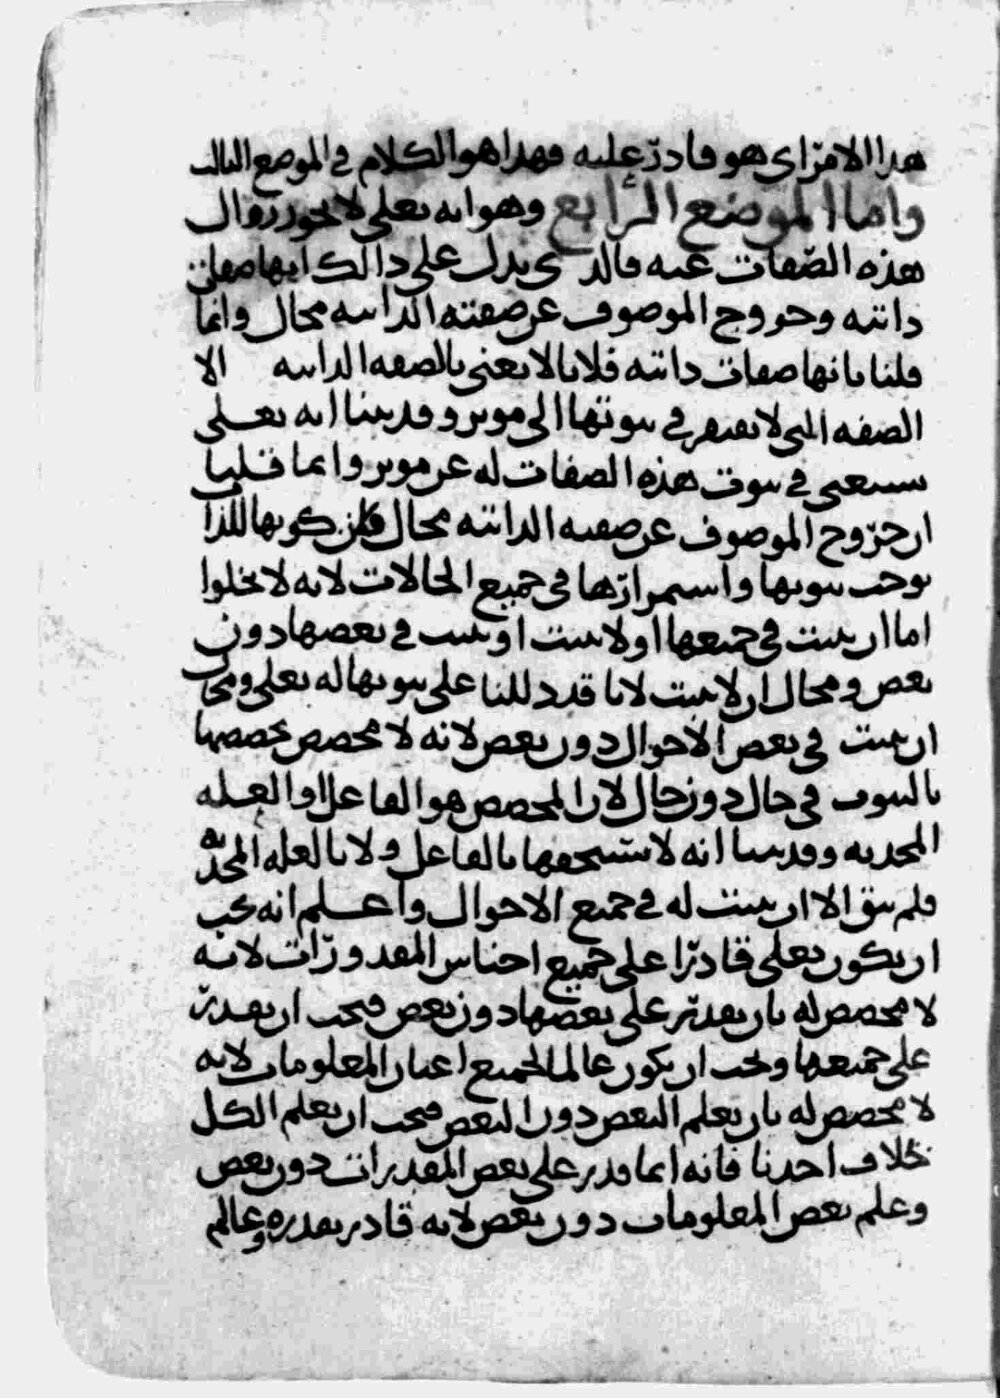 هذا الامر اي هو قادر عليه فهذا هو الكلام في الموضع الثالث
واما الموضع الرابع وهو انه تعلى لا يجوز زوال
هذه الصفات عنه فالذي يدل على ذالك انها صفات
ذاتيه وخروج الموصوف عن صفته الذاتيه محال وانما
قلنا بانها صفات ذاتيه فلانا لا نعني بالصفه الذاتيه الا
الصفه التي لا تفتقر في ثبوتها الى موثر وقد بينا انه تعلى
يستغني في ثبوت هذه الصفات له عن موثر وانما قلنا
ان خروج الموصوف عن صفته الذاتيه محال فلان كونها للذات
يوجب ثبوتها واستمرارها في جميع الحالات لانه لا يخلوا
اما ان يثبت في جميعها او لا يثبت او يثبت في بعضها دون
بعض ومحال ان لا يثبت لانا قد دللنا على ثبوتها له تعلى ومحال
ان يثبت في بعض الاحوال دون بعض لانه لا مخصص يخصصها
بالثبوت في حال دون حال لان المخصص هو الفاعل او العله
المحدثه وقد بينا انه لا يستحقها بالفاعل ولا بالعله المحدثه
فلم يبق الا ان يثبت له في جميع الاحوال واعلم انه يجب
ان يكون تعلى قادرا على جميع اجناس المقدورات لانه
لا مخصص له بان يقدر على بعضها دون بعض فيجب ان يقدر
على جميعها ويجب ان يكون عالما لجميع اعيان المعلومات لانه
لا مخصص له بان يعلم البعض دون البعض فيجب ان يعلم الكل
بخلاف احدنا فانه انما قدر على بعض المقدرات دون بعض
وعلم بعض المعلومات دون بعض لانه قادر بقدره وعالم